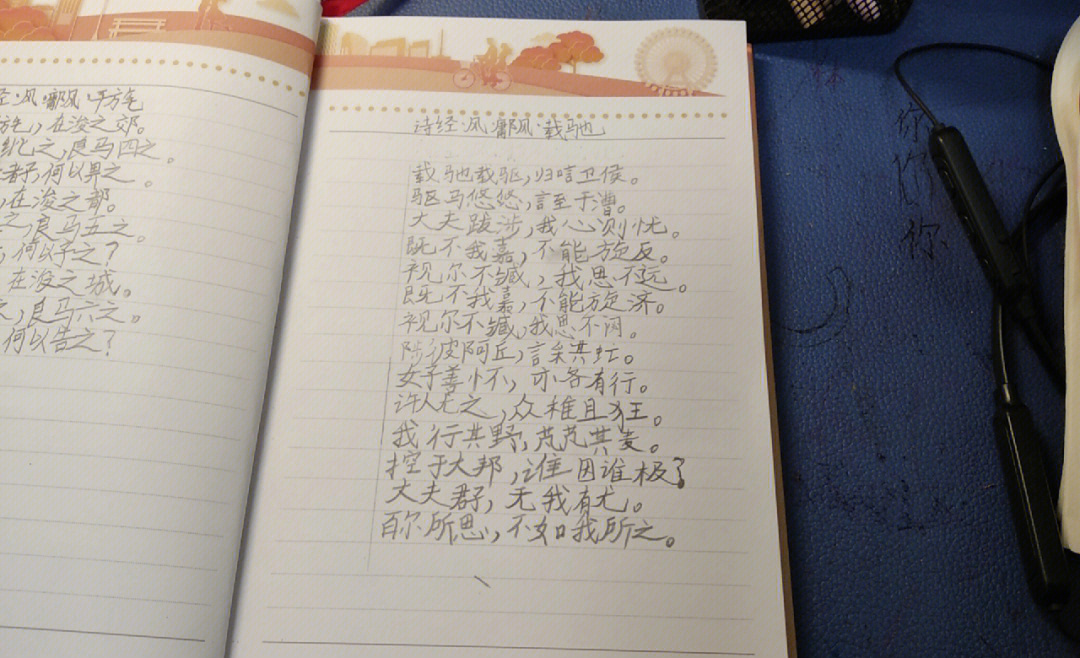 经·风·鄘风·干旄
旄，在浚之郊。
纰之，良马四之。
者子，何以畀之。
，在浚之都。
之，良马五之。
，何以予之？
在浚之城。
，良马六之。
何以告之？
诗经·风·鄘风·载驰
载驰载驱，归唁卫侯。
驱马悠悠，言至于漕。
大夫跋涉，我心则忧。
既不我嘉，不能旋反。
视尔不臧，我思不远。
既不我嘉，不能旋济。
视尔不臧，我思不閟。
陟彼阿丘，言采其虻。
女子善怀，亦各有行。
许人尤之，众稚且狂。
我行其野，芃芃其麦。
控于大邦，谁因谁极？
大夫君子，无我有尤。
百尔所思，不如我所之。
你
你
你